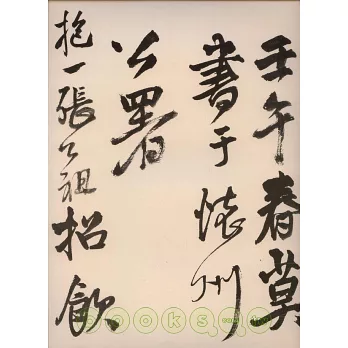 壬午春莫
書于懷州
公署
抱一張公祖招飲
books